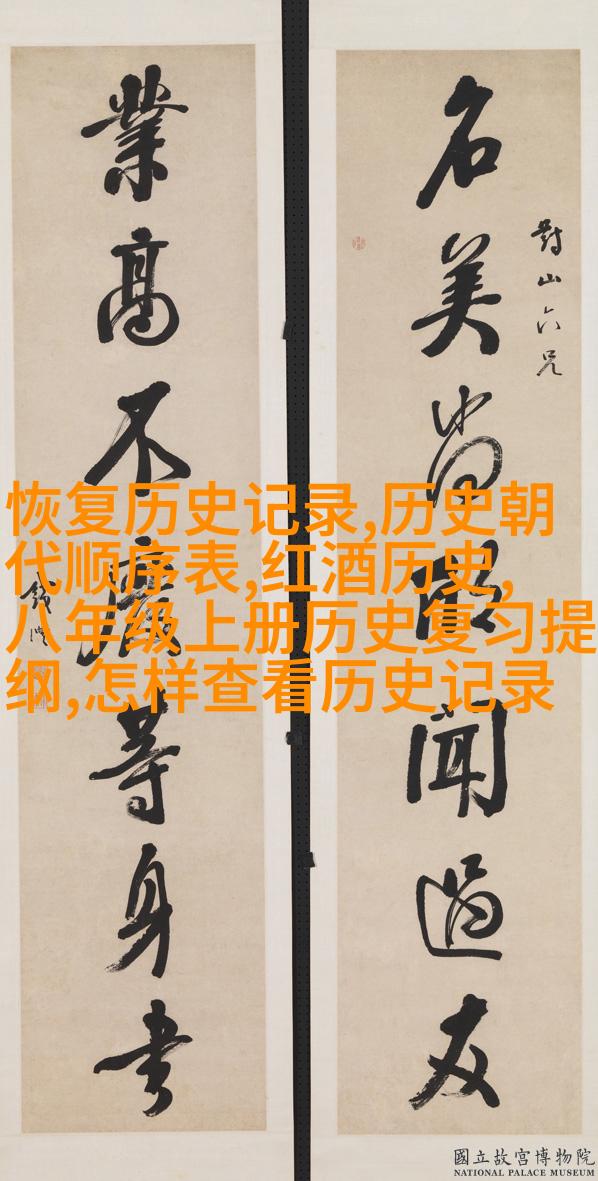 對山六兄
名美尚欣聞過友
業高不廢等身書
錢灃
恢复历史记录,历史朝
代顺序表,红酒历史,
八年级上册历史复习提
纲,怎样查看历史记录
國立故宮博物院
NATIONAL PALACE MUSEUM